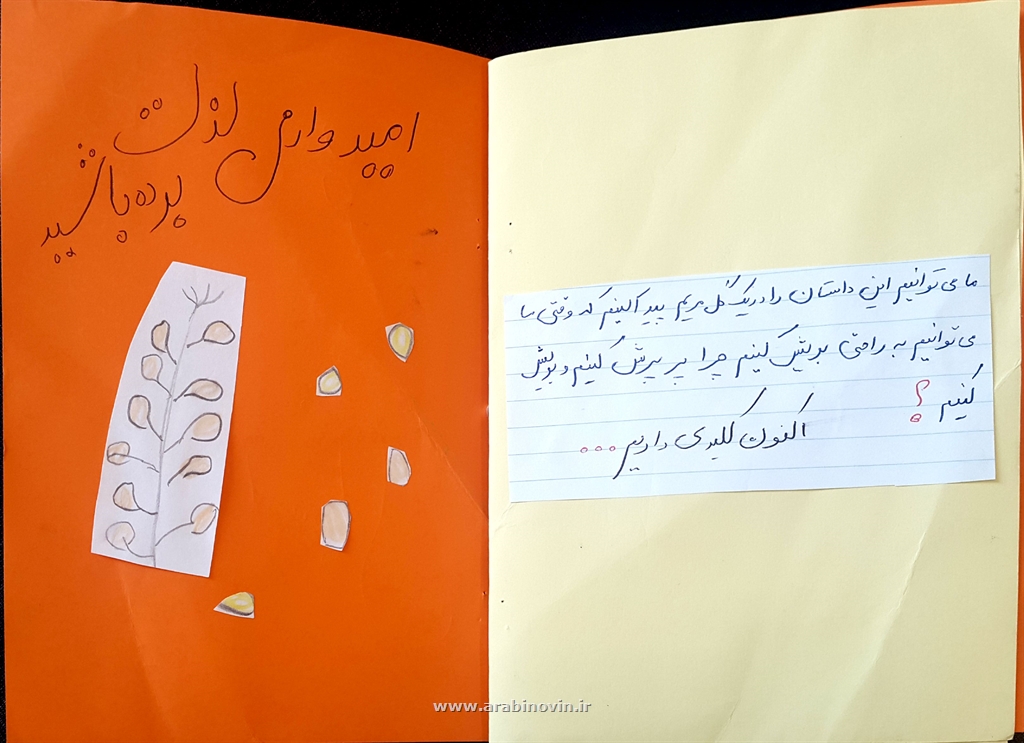 امیدوارم لذت
برده باشید
ما می توانیم این داستان را در یک گل مریم پیدا کنیم که وقتی ما
می توانیم به راحتی بویش کنیم چرا پر پرش کنیم و بویش
کنیم ؟
اکنون کلیدی داریم ...
www.arabinovin.ir